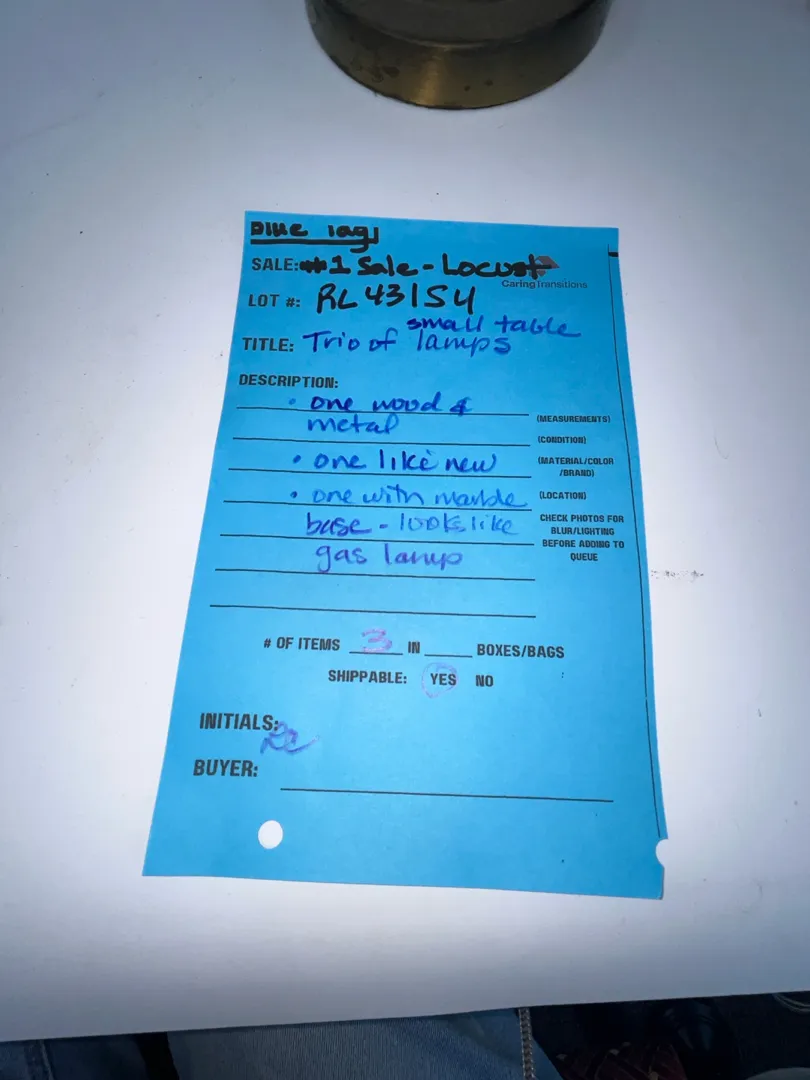 Blue tag
SALE: #1 Sale - Locust
Caring Transitions
LOT #: RL43154
small table
TITLE: Trio of lamps
DESCRIPTION:
• one wood &
(MEASUREMENTS)
metal
(CONDITION)
• one like new
(MATERIAL/COLOR
/BRAND)
• one with marble
(LOCATION)
base - looks like
CHECK PHOTOS FOR
BLUR/LIGHTING
gas lamp
BEFORE ADDING TO
QUEUE
# OF ITEMS 3 IN BOXES/BAGS
SHIPPABLE: YES NO
INITIALS:
RC
BUYER: